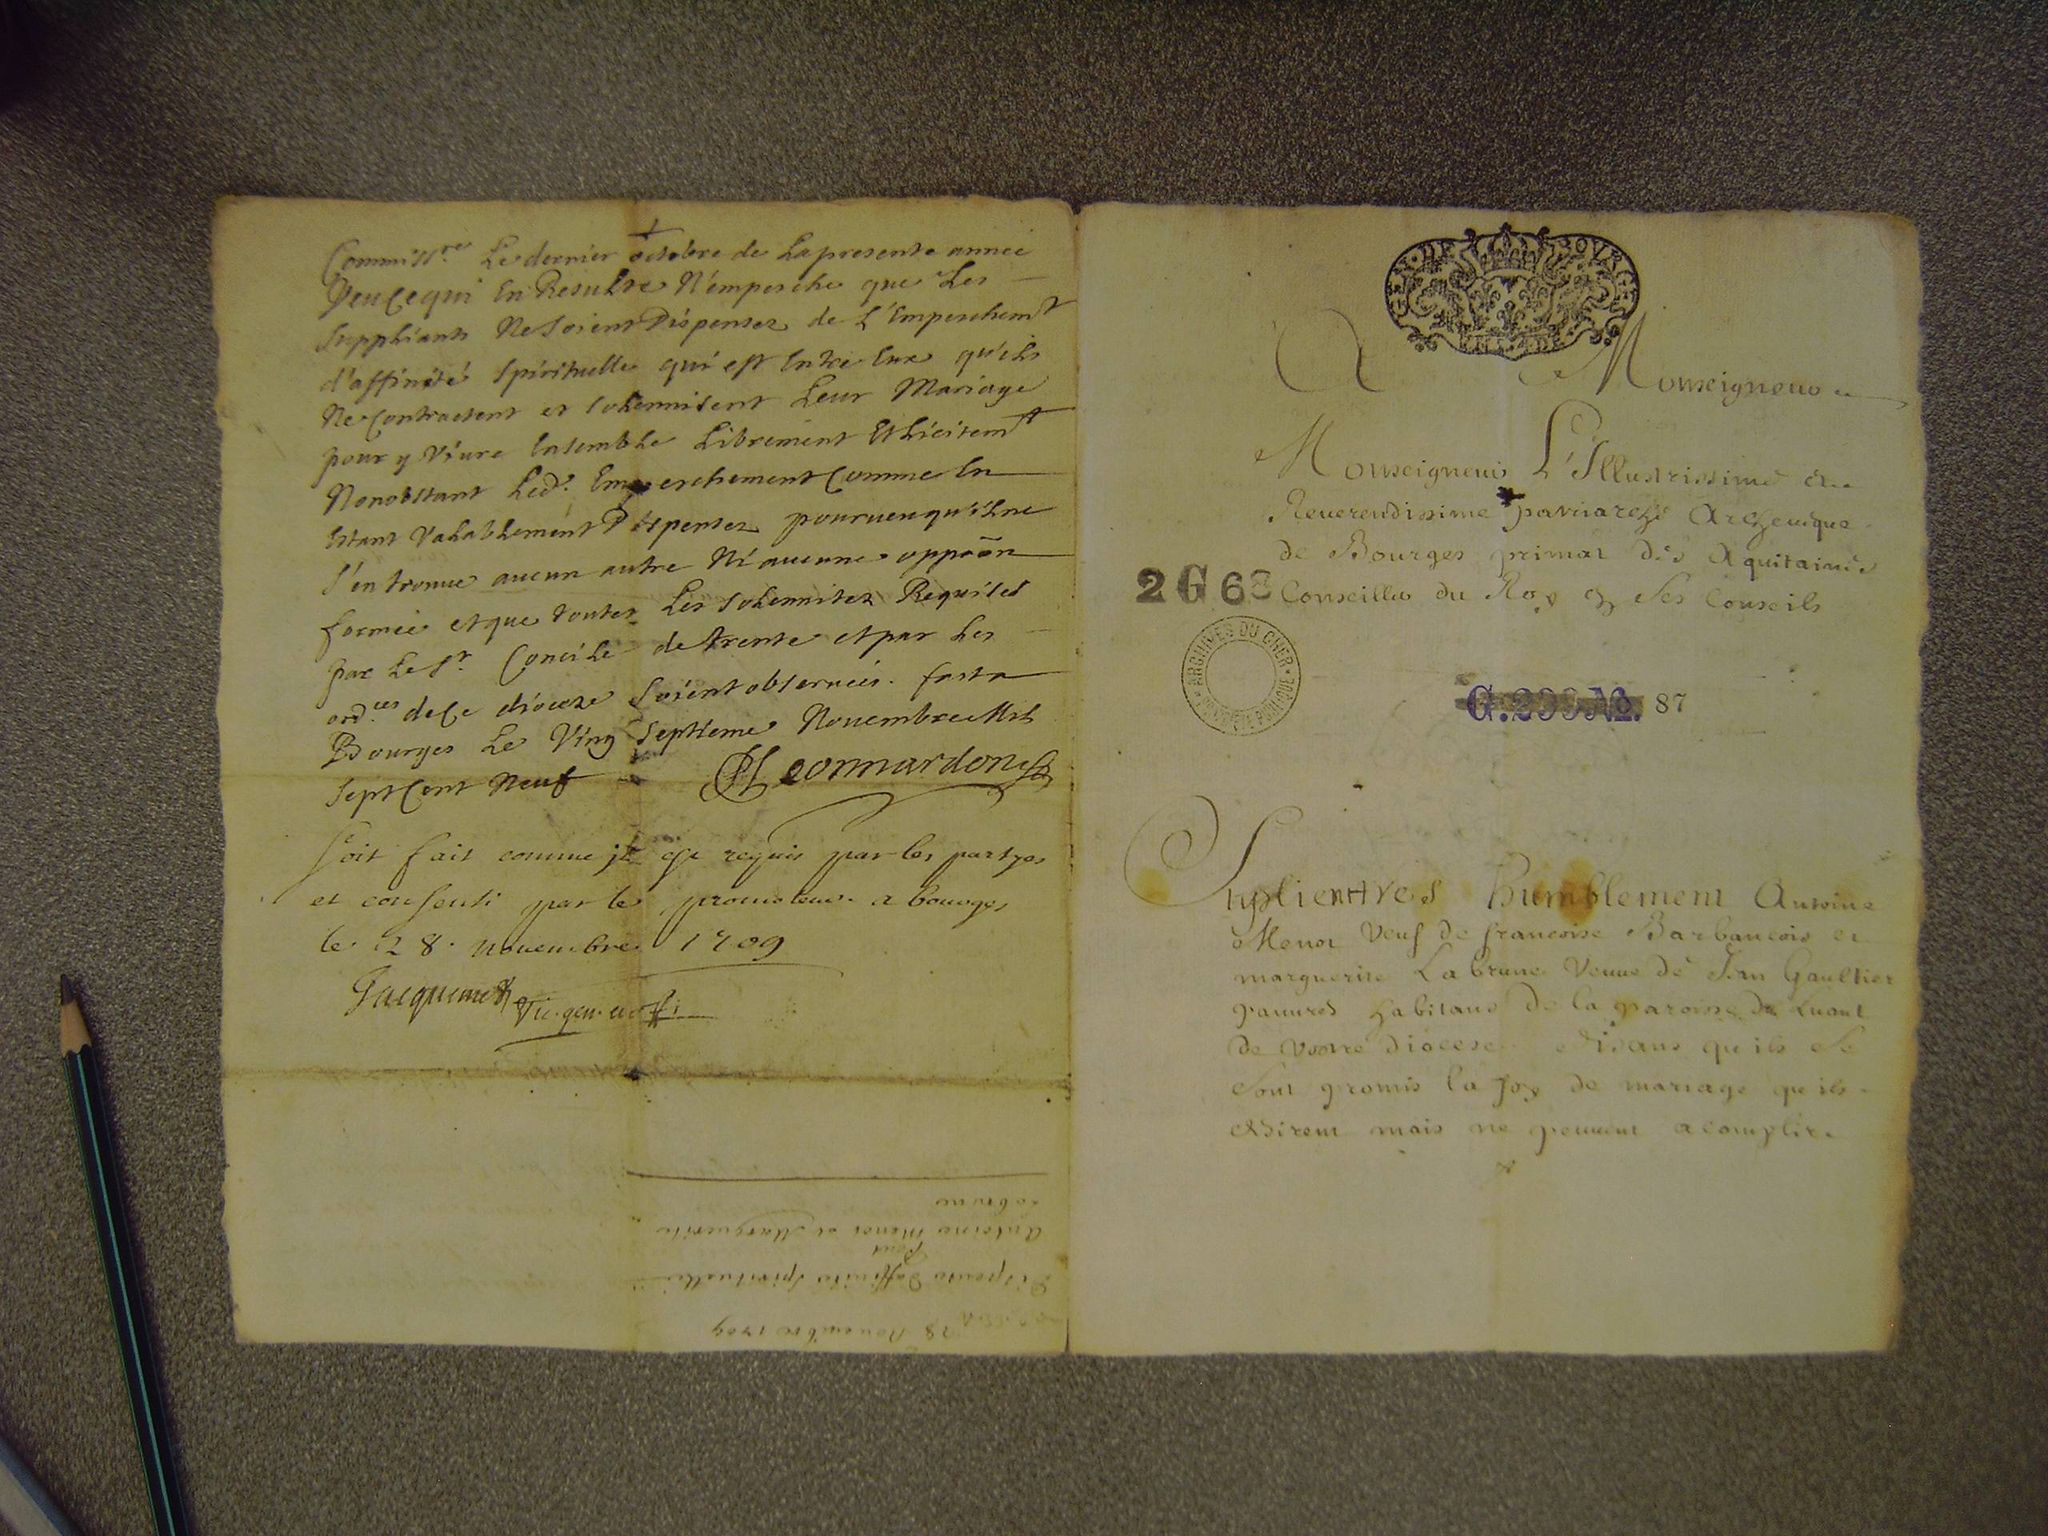 Commiss.res Le dernier octobre de La presente année
Veu Ce qui En Resulte N'empesche que Les
Supplians Ne Soient Dispensez de L'Empeschemt
d'affinité Spirituelle qui est Entre Eux qu'ils
Ne Contractent et Solemnisent Leur Mariage
pour y Viure Ensemble Librement Et Licitemt
Nonobstant Led. Empeschement Comme En
Estant Valablement Dispensez pourueu qu'il ne
S'en trouue aucun autre Ni aucune oppoon
formée et que toutes Les Solemnitez Requises
par Le St Concile de trente et par Les
ordces de Ce dioceze Soient obseruées. fait a
Bourges Le Ving Septieme Nouembre Mil
Sept Cent Neuf Leonnardon
Soit fait comme il est requis par les partyes
et consenti par le promoteur a bourges
le 28. nouembre 1709
Jacquemet Vic. gen.
28 Nouembre 1709
Dispense Daffinité Spirituelle
Pour
Antoine Menot et Marguerite
Labrune
A Monseigneur
Monseigneur L'Illustrissime et
Reuerendissime patriarche Archeuêque
de Bourges primat des Aquitaines
Conseiller du Roy en Ses Conseils
2 G 63
ARCHIVES DU CHER
G. 299 No. 87
Suplient tres humblement Antoine
Menot Veuf de francoise Barbancois et
marguerite Labrune Veuue de Jean Gaultier
pauures habitans de la paroisse de Luant
de Vostre diocese Disans qu'ils Se
Sont promis la foy de mariage qu'ils
desirent mais ne peuuent acomplir